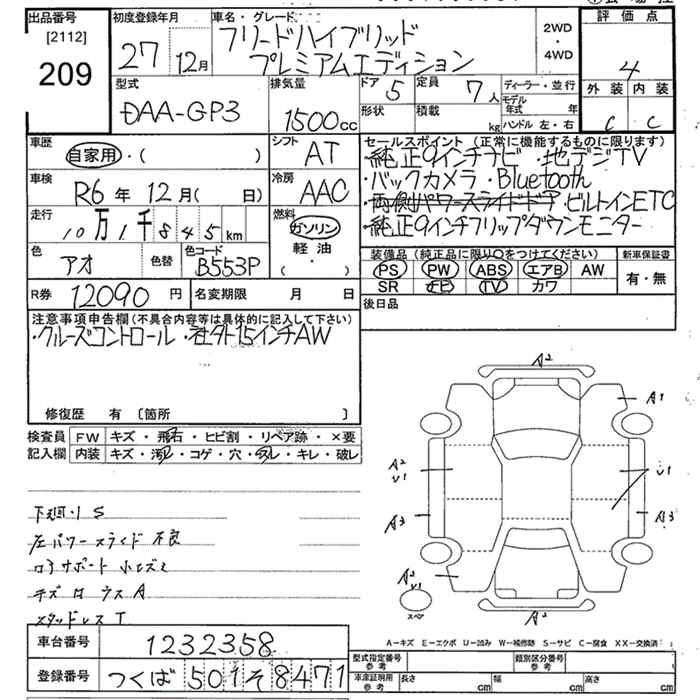 出品番号
[2112]
209
初度登録年月
27年12月
車名・グレード
フリードハイブリッド
プレミアムエディション
2WD
・
4WD
評価点
4
外装 内装
C C
型式
DAA-GP3
排気量
1500cc
ドア 5
定員 7人
形状
積載 kg
ディーラー・並行
モデル年式 年
ハンドル 左・右
車歴
自家用・( )
シフト
AT
車検
R6年12月( 日)
冷房
AAC
走行
10万1千845km
燃料
ガソリン
軽油
( ・ )
色
アオ
色替
色コード
B553P
R券 12090円
名変期限 月 日
セールスポイント (正常に機能するものに限ります)
・純正9インチナビ ・地デジTV
・バックカメラ・Bluetooth
・両側パワースライドドア・ビルトインETC
・純正9インチフリップダウンモニター
装備品 (純正品に限り○をつけてください)
新車保証書
PS PW ABS エアB AW
SR ナビ TV カワ
有・無
後日品
注意事項申告欄(不具合内容等は具体的に記入して下さい)
・クルーズコントロール ・社外15インチAW
修復歴 有 [箇所 ]
検査員 FW キズ・飛石・ヒビ割・リペア跡・×要
記入欄 内装 キズ・汚レ・コゲ・穴・スレ・キレ・破レ
下廻り S
左パワースライド不良
スタッドレスT
A2
A1
A2
V1
V1
A3
A3
A2
V1
スペア
A2
A-キズ E-エクボ U-凹み W-補修跡 S-サビ C-腐食 XX-交換済
車台番号 1232358
登録番号 つくば501そ8471
型式指定番号 参考
類別区分番号 参考
車庫証明用 参考
長さ cm
幅 cm
高さ cm